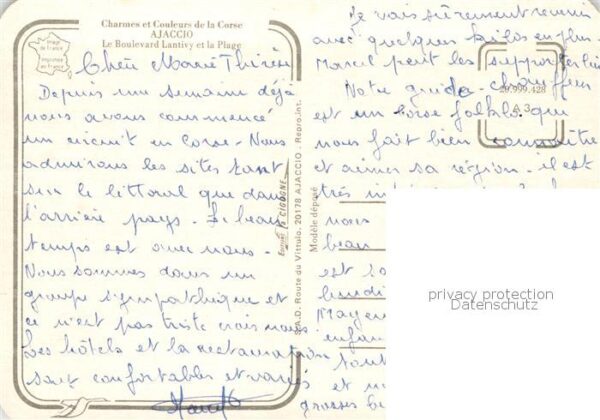 Charmes et Couleurs de la Corse
AJACCIO
Le Boulevard Lantivy et la Plage
Image de France
Imprimée en France
Chère Marie Thérèse
Depuis une semaine déjà
nous avons commencé
un circuit en Corse - Nous
admirons les sites tant
sur le littoral que dans
l'arrière pays. Le beau
temps est avec nous -
Nous sommes dans un
groupe sympathique et
ce n'est pas triste crois-nous
Les hôtels et la restauration
sont confortables et variés
Editions "CIGOGNE"
S.A.D. Route du Vittulo. 20178 AJACCIO. Repro.int.
Modèle déposé
Je vais sûrement revenir
avec quelques kilos en plus
Marcel peut les supporter
20.999.428
A 3
Notre guide - chauffeur
est un corse folklo que
nous fait bien connaître
et aimer sa région - il est
très
nous
beau
est
lundi
enfan
tout
et
grosses
privacy protection
Datenschutz